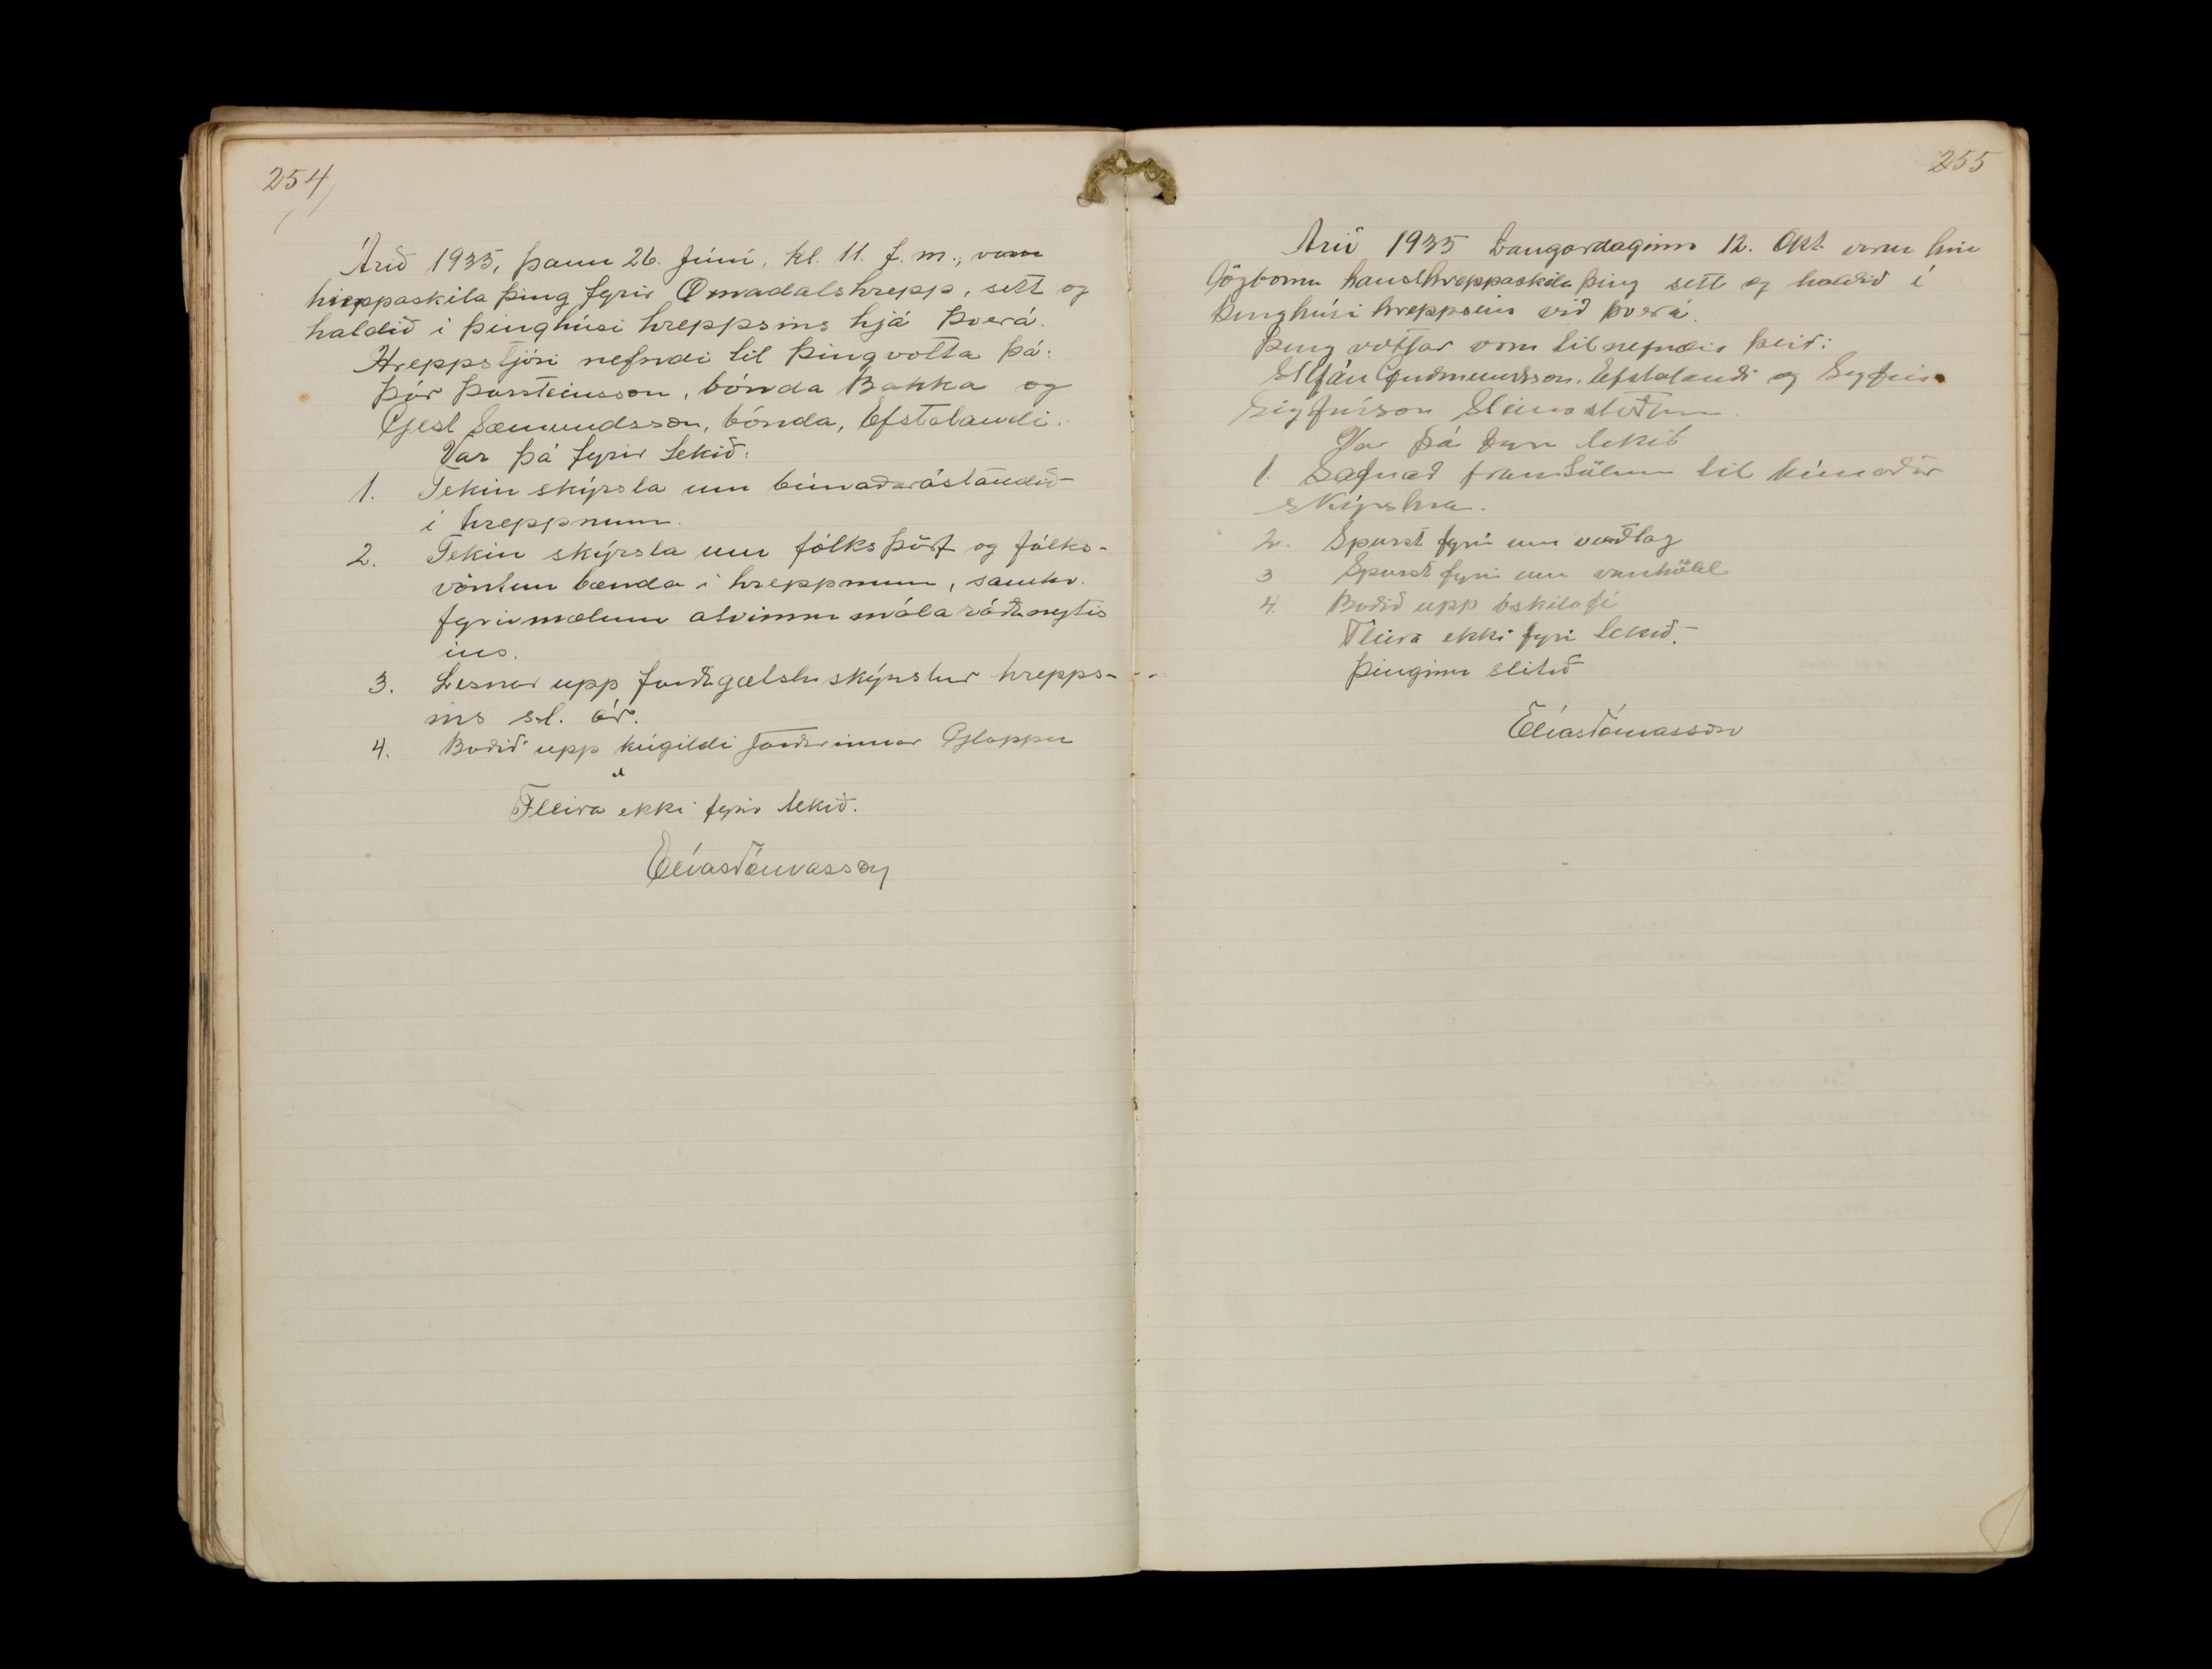 254
Árið 1935, þann 26. júní, kl. 11. f. m., vom
hreppaskila þing fyrir Öxnadalshrepp, sett og
haldið i þinghúsi hreppsins hjá Þverá.
Hreppstjóri nefndi til þingvotta þá:
Þór Þorsteinsson, bónda Bakka og
Gest Sæmundsson, bónda, Efstalandi.
Var þá fyrir tekið:
1. Tekin skýrsla um búnaðarástandið
i hreppnum.
2. Tekin skýrsla um fólksþörf og fólks-
vöntun bænda i hreppnum, samkv.
fyrirmælum atvinnumála ráðuneytis
ins.
3. Lesnar upp forðagæslu skýrslur hrepps-
ins s.l. ár.
4. Boðið upp kúgildi jarðarinnar Gloppu
Fleira ekki fyrir tekið.
Elías Tómasson
255
Arið 1935 Laugardaginn 12. Okt. var hin
lögbornu hausthreppaskila þing sett og haldið í
þinghúsi hreppsins við Þverá.
Þing vottar vom tilnefndir þeir:
Stefán Guðmundsson. Efstalandi og Sigfús
Sigfússon Steinsstöðum
Var þá fyri tekið
1. Safnað framtölum til búnaðar
skýrslna.
2. Spurst fyri um verðlag
3 Spurst fyri um vanhöld
4. Boðið upp óskilafé
Fleira ekki fyri tekið.
Þinginu slitið
Elías Tómasson